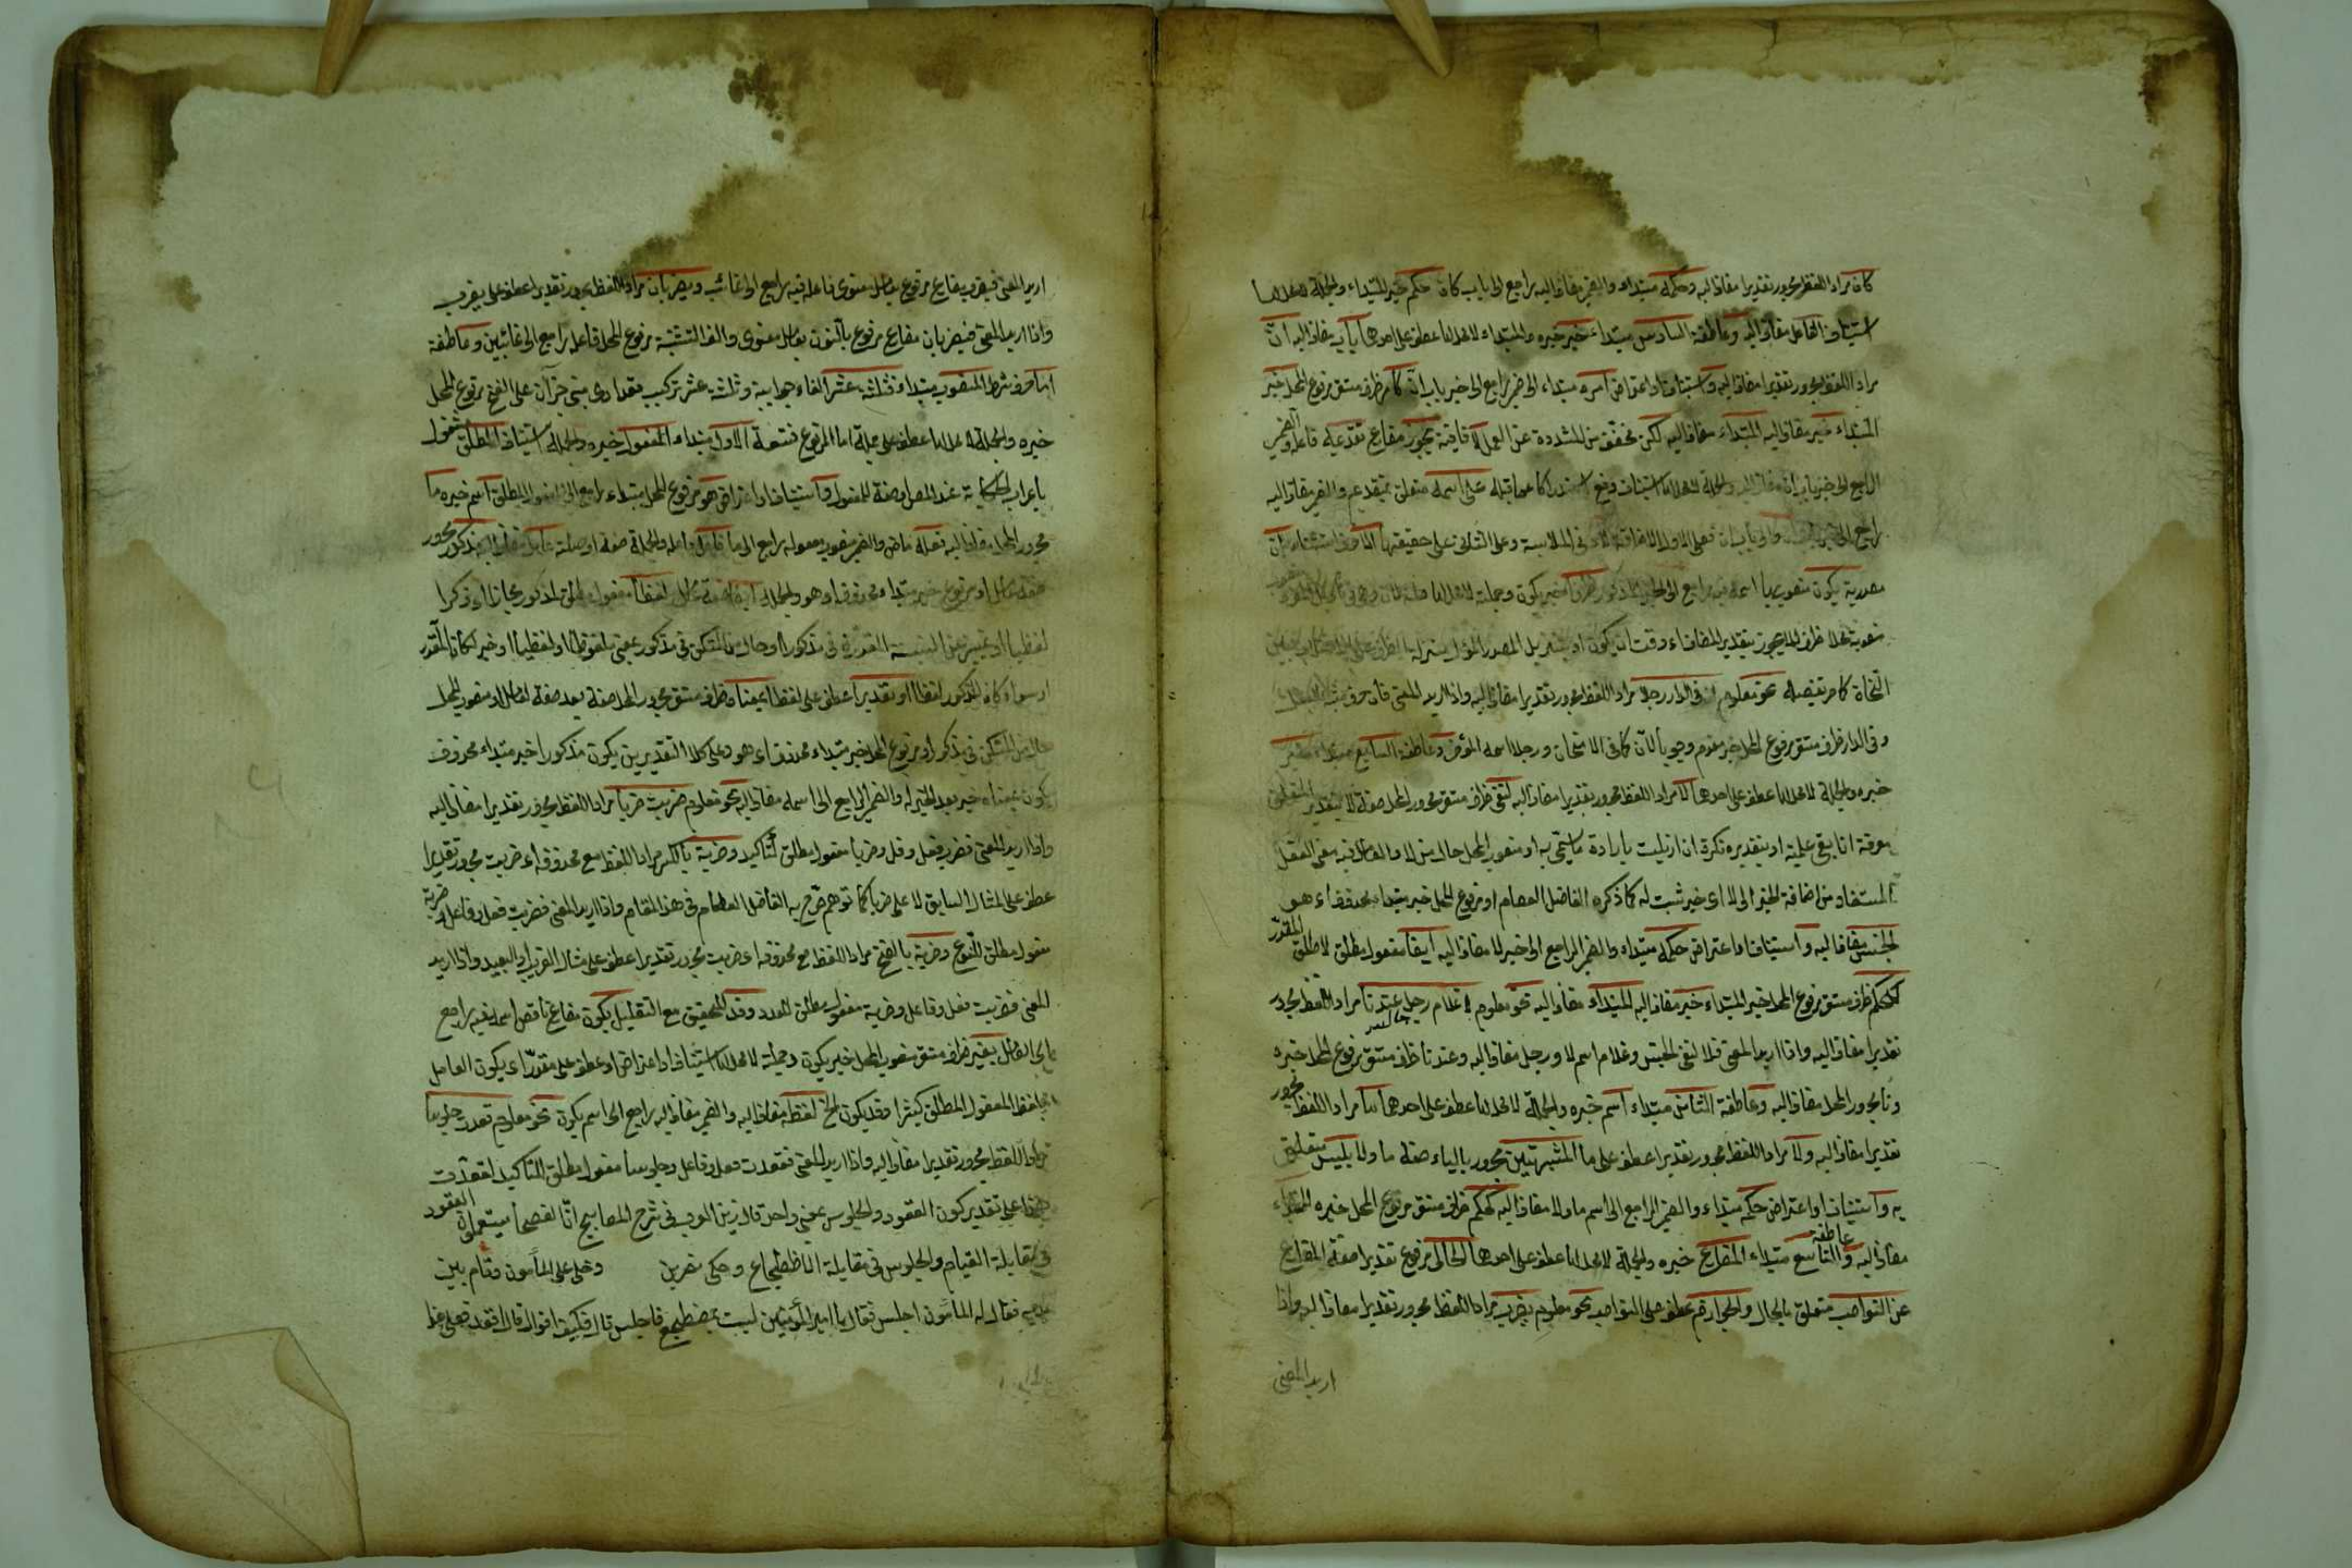 كان مراد اللفظ مجرور تقديرا مضاف اليه وحكمه مبتداء والضمير مضاف اليه راجع الى باب كان حكم خبر المبتداء والجملة لا محل لها
استيناف الفاعل مضاف اليه وعاطفة السادس مبتداء خبر خبره والمبتداء لا محل لها عطف على احدهما باب مضاف اليه ان
مراد اللفظ مجرور تقديرا مضاف اليه واستيناف او اعتراض امره مبتداء الى ضمير راجع الى خبر باب ان كامر ظرف مستقر مرفوع المحل خبر
المبتداء خبر مضاف اليه المبتداء مضاف اليه لكن مخفف من المشددة عن العمل لا نافية يجوز مضارع تقديمه فاعله والضمير
الراجع الى خبر باب ان مضاف اليه والجملة لا محل لها استيناف وقع استدراكا عما قبله على اسمه متعلق بتقديم والضمير مضاف اليه
راجع الى فعلى الاول الاضافة في الملابسة وعلى الثاني على حقيقتها الا حرف استثناء ان
مصدرية يكون منصوب بها اسمه فيه راجع الى الخبر المذكور ظرفا خبر يكون وجملة لا محل لها صلة لان وهي في تأويل المفرد
منصوبة محلا ظرف للا يجوز بتقدير المضاف اى وقت ان يكون او بتنزيل المصدر المؤل منزلة الظرف
النحاة كامر تفصيله نحو معلوم ان في الدار رجلا مراد اللفظ مجرور تقديرا مضاف اليه واذا اريد المعنى فان حرف
وفي الدار ظرف مستقر مرفوع المحل خبر مقدم وجوبا لان كما في الامتحان ورجلا اسمه المؤخر وعاطفة السابع مبتداء
خبره والجملة لا محل لها عطف على احدهما لا مراد اللفظ مجرور تقديرا مضاف اليه لنفي ظرف مستقر مجرور المحل صفة لا بتقدير المتعلق
معرفة ان ابقي علمية او بتقديره نكرة ان ازيلت بارادة ما يسمى به او منصوب المحل حال من لا والعامل فيه معنى الفعل
المستفاد من اضافة الخبر الى لا اى خبر ثبت له كما ذكره الفاضل العصام او مرفوع المحل خبر مبتداء محذوف اى هو
الجنس مضاف اليه واستيناف او اعتراض حكمه مبتداء والضمير الراجع الى خبر لا مضاف اليه ايضا مفعول مطلق لاطلق المقدر
كحكم ظرف مستقر مرفوع المحل خبر المبتداء خبر مضاف اليه المبتداء مضاف اليه نحو معلوم لا غلام رجل عندنا مراد اللفظ مجرور
تقديرا مضاف اليه واذا اريد المعنى فلا لنفي الجنس وغلام اسم لا ورجل مضاف اليه وعندنا ظرف مستقر مرفوع المحل خبره
ونا مجرور المحل مضاف اليه وعاطفة الثامن مبتداء اسم خبره والجملة لا محل لها عطف على احدهما ما مراد اللفظ مجرور
تقديرا مضاف اليه ولا مراد اللفظ مجرور تقديرا عطف على ما المشبهتين مجرور بالياء صفة ما ولا بليس متعلق
به واستيناف او اعتراض حكمه مبتداء والضمير الراجع الى اسم ما ولا مضاف اليه كحكم ظرف مستقر مرفوع المحل خبره المبتداء
مضاف اليه وعاطفة التاسع مبتداء المضارع خبره والجملة لا محل لها عطف على احدهما الخالي مرفوع تقديرا صفة المضارع
عن النواصب متعلق بالخال والجوازم عطف على النواصب نحو معلوم يضرب مراد اللفظ مجرور تقديرا مضاف اليه واذا
اريد المعنى
اريد المعنى فيضرب مضارع مرفوع بعامل معنوى فاعله فيه راجع الى الغائب ويضربان مراد اللفظ مجرور تقديرا عطف على يضرب
واذا اريد المعنى فيضربان مضارع مرفوع بالنون بعامل معنوى والف التثنية مرفوع المحل فاعله راجع الى غائبين وعاطفة
اما حرف شرط المنصوب مبتداء فثلثة عشر الفاء جوابية وثلثة عشر تركيب تعدادى مبني جزآن على الفتح مرفوع المحل
خبره والجملة لا محل لها عطف على جملة اما المرفوع فتسعة الاول مبتداء المفعول خبره والجملة استيناف المطلق مشغول
باعراب الحكاية عند المص او صفة للمفعول واستيناف او اعتراض هو مرفوع المحل مبتداء راجع الى المفعول المطلق اسم خبره ما
مجرور المحل مضاف اليه فعله ماض والضمير منصوب مفعوله راجع الى ما فاعل فاعله والجملة صفة او صلة عامل مضاف اليه مذكور مجرور
صفة عامل او مرفوع خبر مبتداء محذوف اى هو والجملة صفة عامل لفظا مفعول مطلق لذكور مجازا اى ذكرا
لفظيا او تمييز عن النسبة المقدرة في مذكور او حال من المستكن في مذكور بمعنى ملفوظا او لفظيا او خبر لكان المقدر
اى سواء كان المذكور لفظا او تقديرا عطف على لفظا بمعناه ظرف مستقر مجرور المحل صفة بعد صفة لعامل او منصوب المحل
حال من المستكن في مذكور او مرفوع المحل خبر مبتداء محذوف اى هو وعلى كلا التقديرين يكون مذكور خبر مبتداء محذوف
يكون بمعناه خبر بعد الخبر له والضمير الراجع الى اسمه مضاف اليه نحو معلوم ضربت ضربا مراد اللفظ مجرور تقديرا مضاف اليه
واذا اريد المعنى فضربت فعل وفاعل وضربا مفعول مطلق لتأكيد وضربة بالكسر مراد اللفظ مع محذوفه اى ضربت مجرور تقديرا
عطف على المثال السابق لا على ضربا كما توهم صرح به الفاضل العصام في هذا المقام واذا اريد المعنى فضربت فعل وفاعل وضربة
مفعول مطلق للنوع وضربة بالفتح مراد اللفظ مع محذوفه اى ضربت مجرور تقديرا عطف على مثال القريب او البعيد واذا اريد
المعنى فضربت فعل وفاعل وضربة مفعول مطلق للعدد وقد للتحقيق مع التقليل يكون مضارع ناقص اسمه فيه راجع
الى العامل بغير ظرف مستقر منصوب المحل خبر يكون وجملة لا محل لها استيناف او اعتراض او عطف على مقدر اى يكون العامل
بلفظ المفعول المطلق كثيرا وقد يكون الخ لفظه مضاف اليه والضمير مضاف اليه راجع الى اسم يكون نحو معلوم قعدت جلوسا
مراد اللفظ مجرور تقديرا مضاف اليه واذا اريد المعنى فقعدت فعل وفاعل وجلوسا مفعول مطلق للتأكيد لقعدت
هذا على تقدير كون القعود والجلوس بمعنى واحد قال زين العرب في شرح المصابيح ان الفصحاء يستعملون القعود
في مقابلة القيام والجلوس في مقابلة الاضطجاع وحكى نضر بن دخل على المأمون وقام بين
يديه فقال له المأمون اجلس فقال يا امير المؤمنين لست بمضطجع فاجلس قال فكيف اقول قال اقعد فعلى هذا